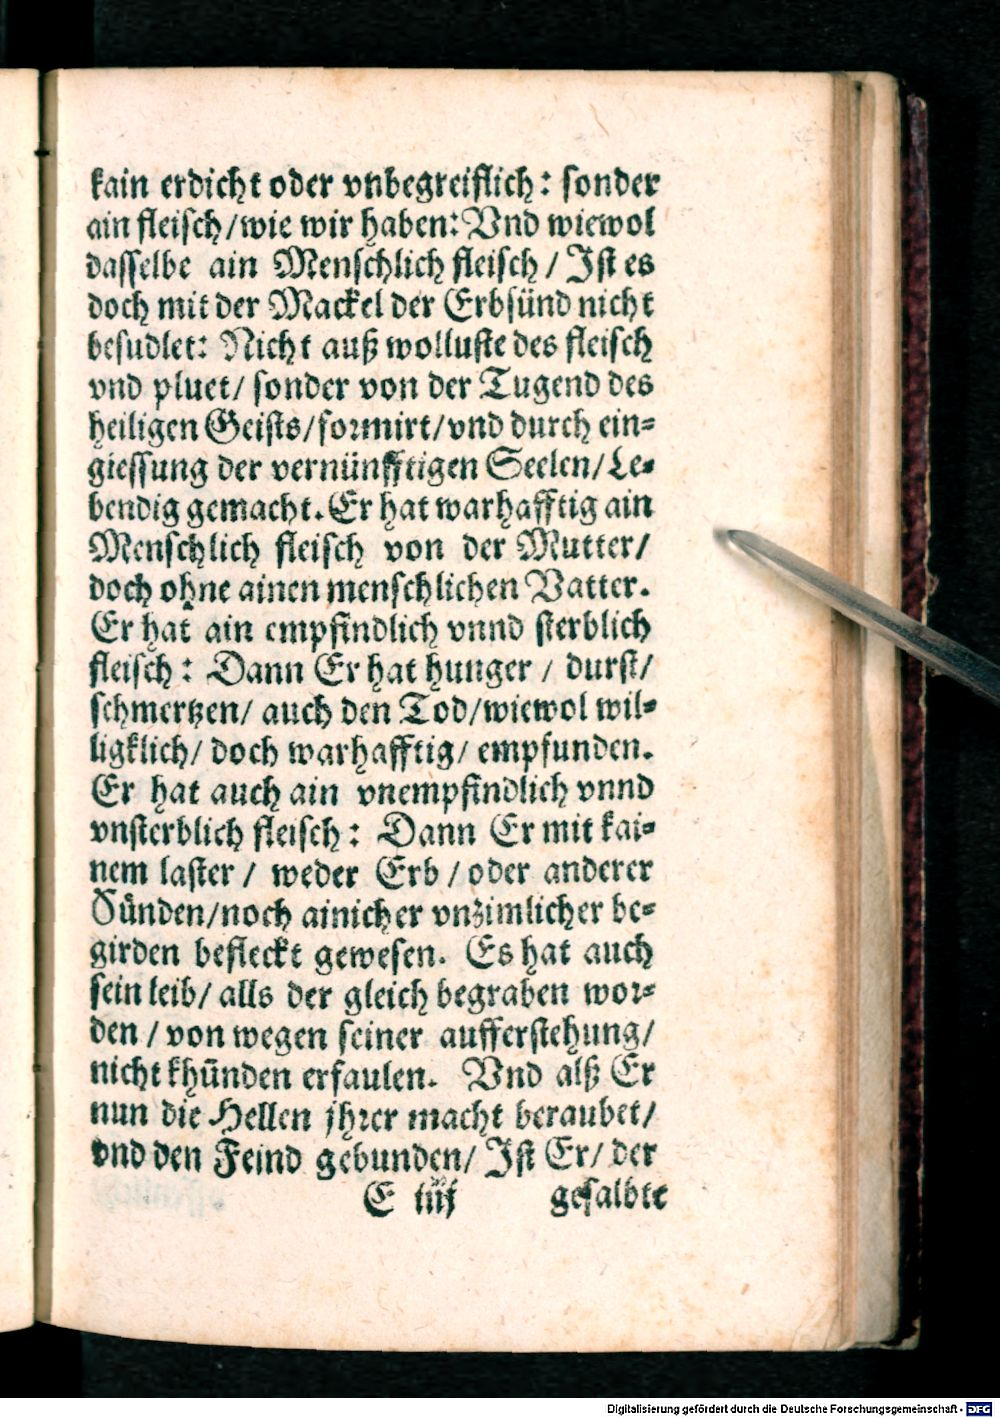 kain erdicht oder vnbegreiflich: sonder
ain fleisch/wie wir haben: Vnd wiewol
dasselbe ain Menschlich fleisch / Ist es
doch mit der Mackel der Erbsünd nicht
besudlet: Nicht auß wolluste des fleisch
vnd pluet/ sonder von der Tugend des
heiligen Geists/formirt/vnd durch ein-
giessung der vernünfftigen Seelen/Le-
bendig gemacht. Er hat warhafftig ain
Menschlich fleisch von der Mutter/
doch ohne ainen menschlichen Vatter.
Er hat ain empfindlich vnnd sterblich
fleisch: Dann Er hat hunger / durst/
schmertzen/ auch den Tod/wiewol wil-
ligklich/ doch warhafftig/ empfunden.
Er hat auch ain vnempfindlich vnnd
vnsterblich fleisch: Dann Er mit kai-
nem laster / weder Erb / oder anderer
Sünden/noch ainicher vnzimlicher be-
girden befleckt gewesen. Es hat auch
sein leib/ alls der gleich begraben wor-
den / von wegen seiner aufferstehung/
nicht khünden erfaulen. Vnd alß Er
nun die Hellen jhrer macht beraubet/
vnd den Feind gebunden/ Ist Er/ der
E iiij gesalbte
Digitalisierung gefördert durch die Deutsche Forschungsgemeinschaft - DFG